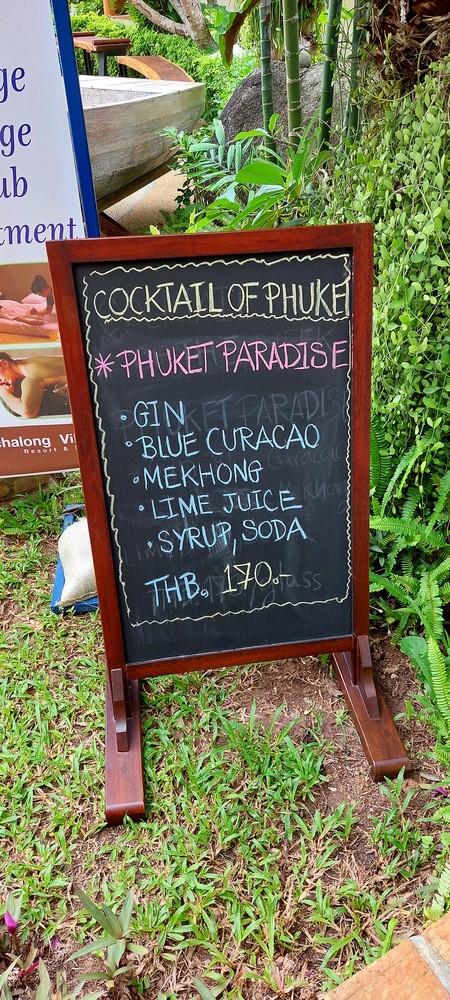 ge
ge
ub
tment
chalong Vi
Resort & S
COCKTAIL OF PHUKET
* PHUKET PARADISE
• GIN
• BLUE CURACAO
• MEKHONG
• LIME JUICE
• SYRUP, SODA
THB. 170.-